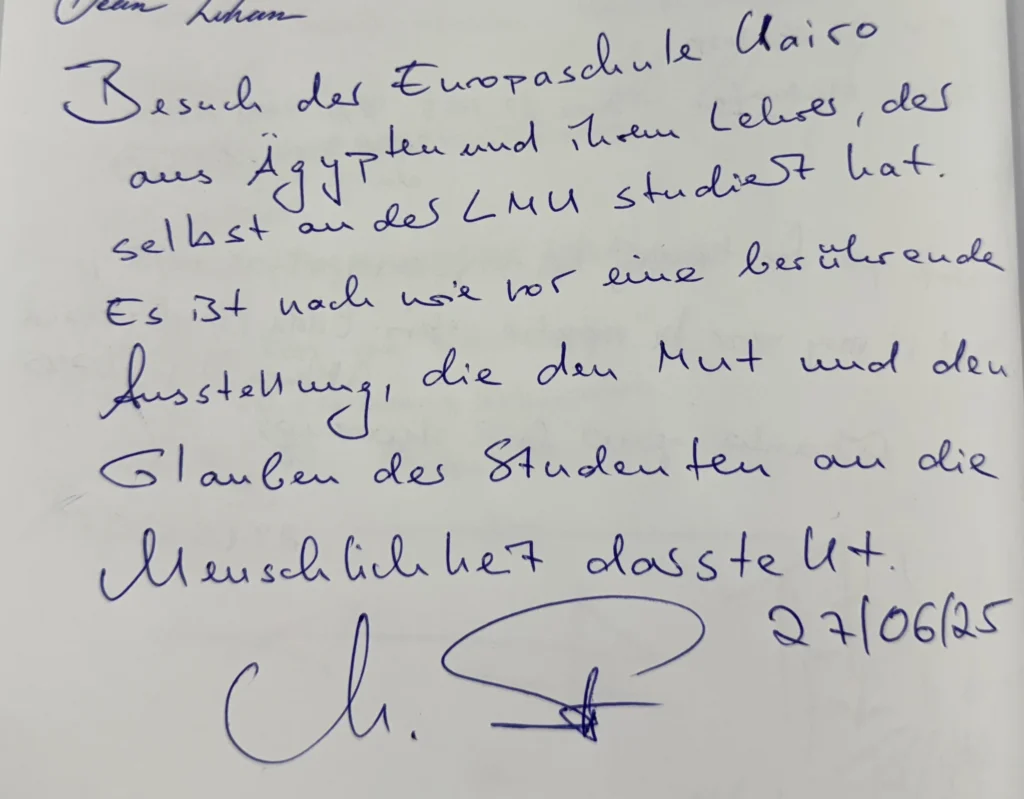 Besuch der Europaschule Kairo
aus Ägypten und ihrem Lehrer, der
selbst an der LMU studiert hat.
Es ist nach wie vor eine berührende
Ausstellung, die den Mut und den
Glauben der Studenten an die
Menschlichkeit darstellt.
27/06/25
Ch.